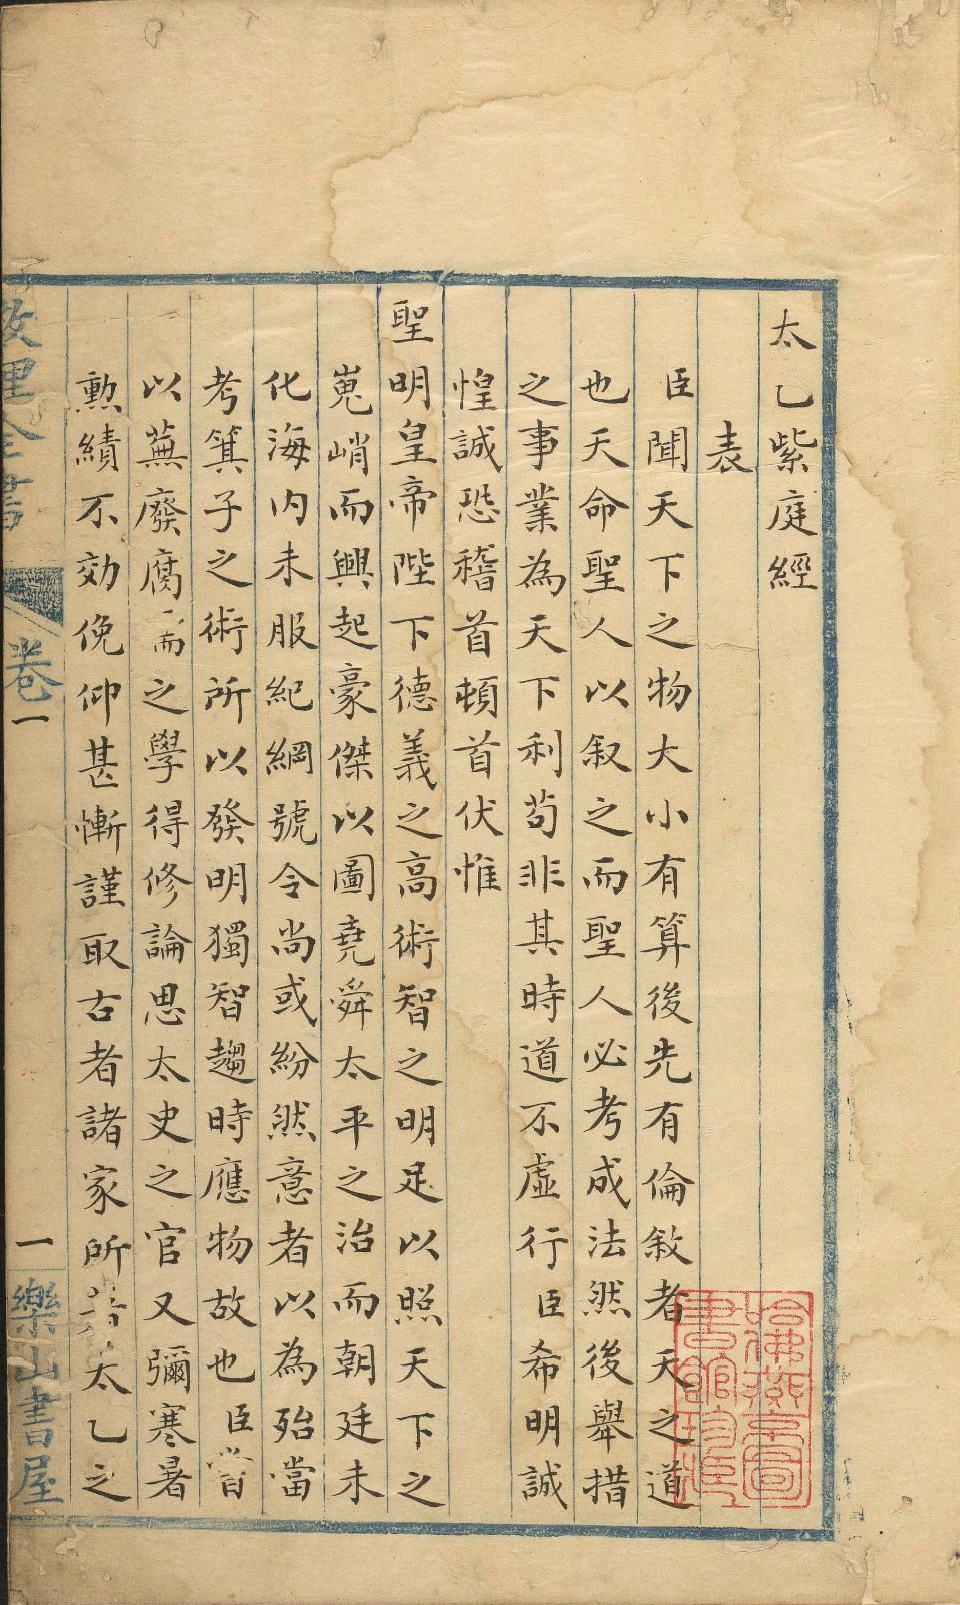 太乙紫庭經
表
臣聞天下之物大小有算後先有倫敘者天之道
也天命聖人以叙之而聖人必考成法然後舉措
之事業為天下利苟非其時道不虛行臣希明誠
惶誠恐稽首頓首伏惟
聖明皇帝陛下德義之高術智之明足以照天下之
嵬峭而興起豪傑以圖堯舜太平之治而朝廷未
化海內未服紀綱號令尚或紛然意者以為殆當
考箕子之術所以發明獨智趨時應物故也臣嘗
以蕪廢腐而之學得修論思太史之官又彌寒暑
勲績不効俛仰甚慚謹取古者諸家所著太乙之
數理全書
卷一
一
樂山書屋
哈佛燕京圖書館珍藏